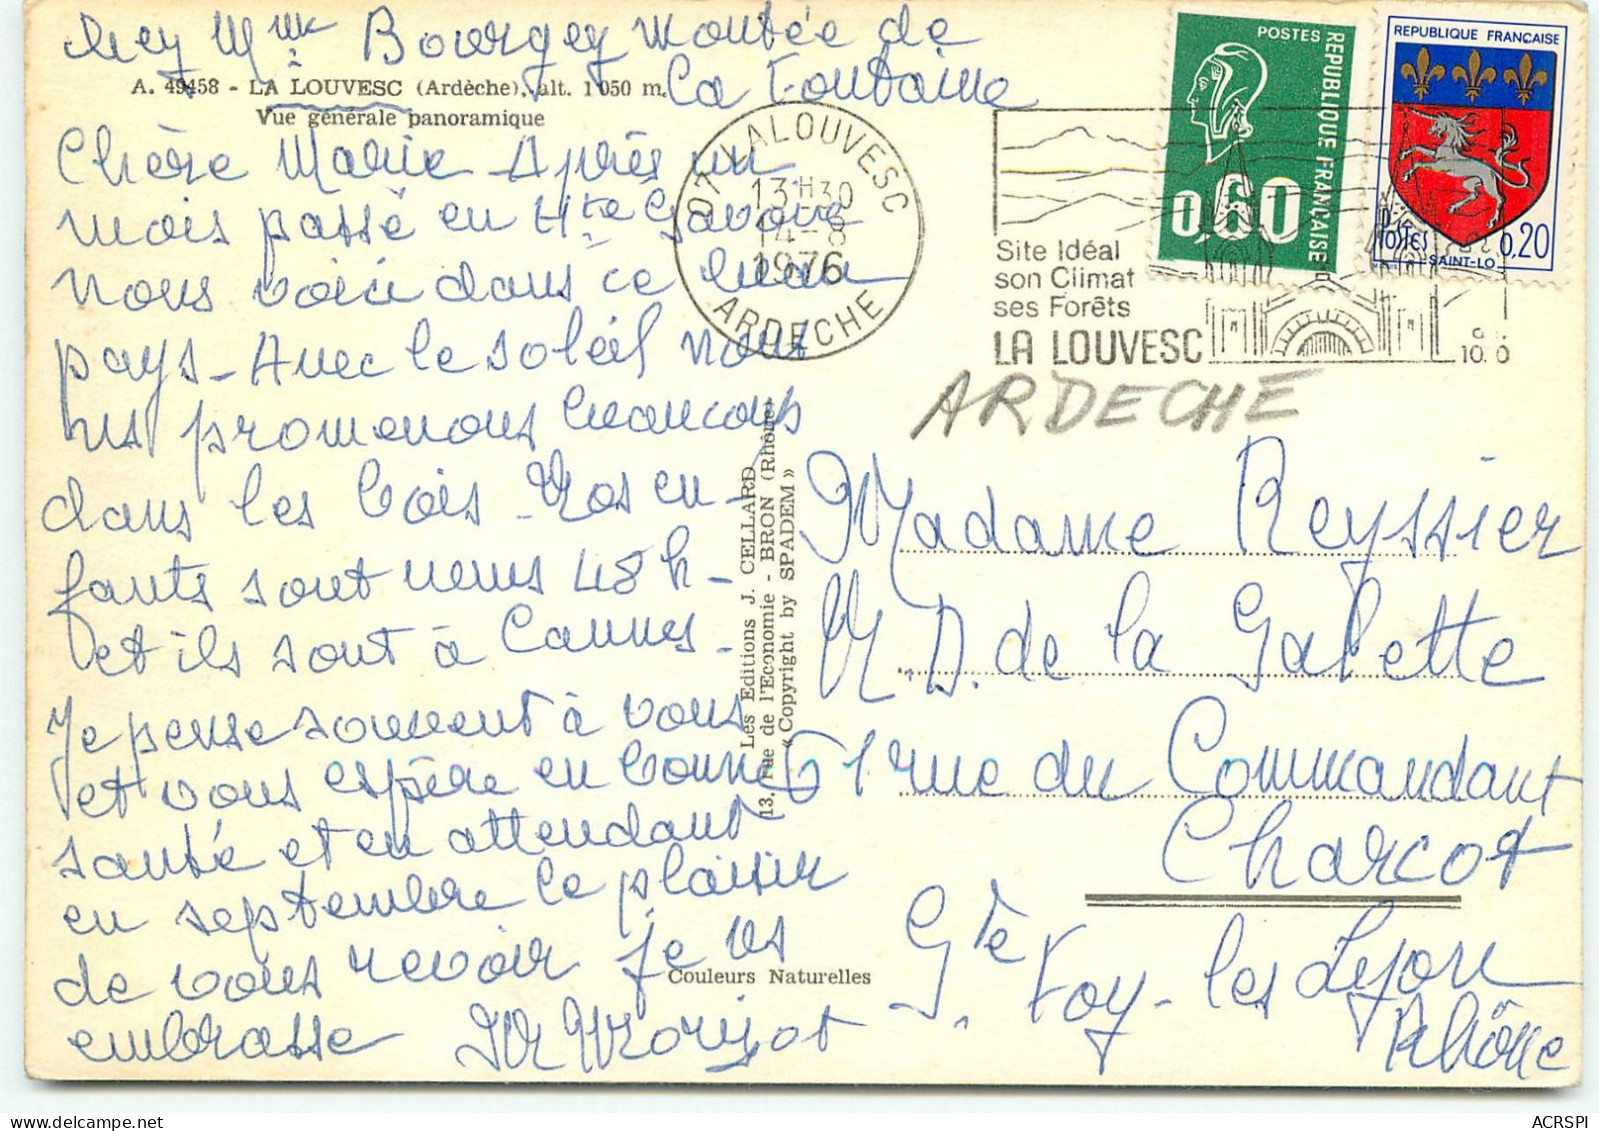 chez Mme Bourgey Montée de
La Fontaine
A. 49458 - LA LOUVESC (Ardèche), alt. 1 050 m.
Vue générale panoramique
Chère Marie Après un
mois passé en Hte Savoie
nous voici dans ce beau
pays - Avec le soleil nous
ns promenons beaucoup
dans les bois - Nos en-
fants sont venus 48 h -
et ils sont à Cannes -
Je pense souvent à vous
et vous espère en bonne
santé et en attendant
en septembre le plaisir
de vous revoir je vs
embrasse
07 LALOUVESC
13 H 30
14 - 8
1976
ARDECHE
Site Idéal
son Climat
ses Forêts
LA LOUVESC
POSTES
REPUBLIQUE FRANÇAISE
0,60
REPUBLIQUE FRANCAISE
POSTES
0,20
SAINT-LO
ARDECHE
Les Editions J. CELLARD
13, rue de l'Economie - BRON (Rhône)
« Copyright by SPADEM »
Madame Reyssier
de la Galette
61 rue du Commandant
Charcot
Ste Foy - les Lyon
Rhône
Couleurs Naturelles
ACRSPI